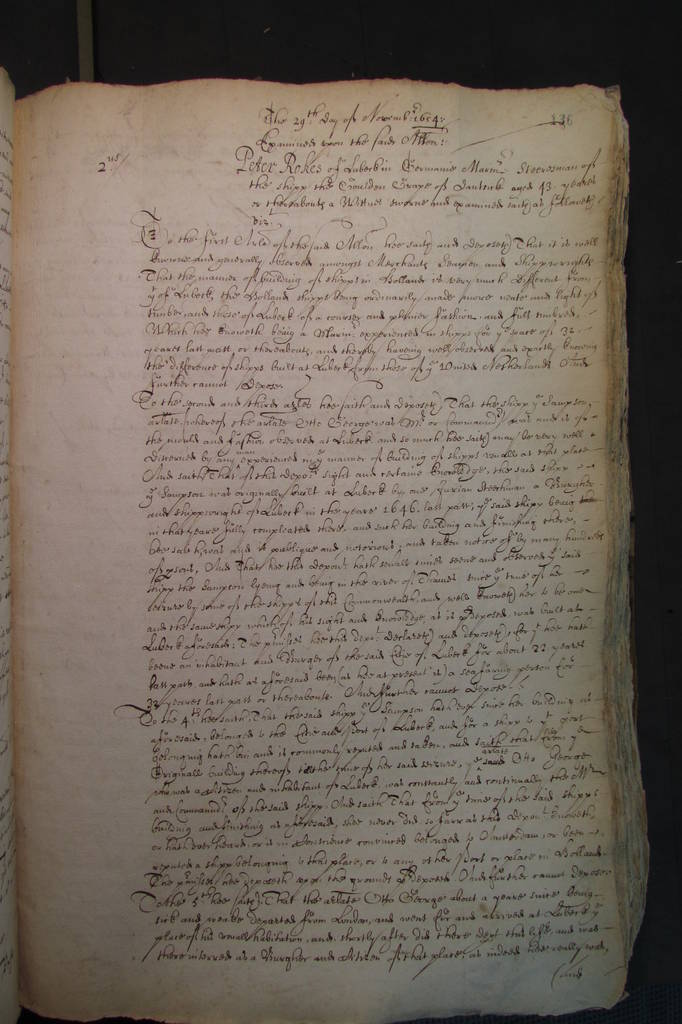 The 29th day of Novemb: 1654:
136
Examined upon the said Allon:
2us/
Peter Rokes of Lubeck in Germanie Marin Steersman of
the shipp the Goulden Grape of aged 43 yeares
or thereabouts a Witnes sworne and examined saith as followeth
viz:
To the first Arle of the said Allon hee saith and deposeth That it is well
knowne and generally observed amongst Merchants Seamen and Shippwrights
That the manner of building of shipps in Holland is very much different from
yt of Lubeck, the Holland shipps being ordinarily made more neate and light of
timber, and those of Lubeck of a courser and plainer fashion, and full timbred,
Which hee knoweth being a Marin experienced in shipps for ye space of 22
yeares last past, or thereabouts, and thereby having well observed and exactly knowing
the difference of shipps built at Lubeck from those of ye United Netherlands And
further cannot depose.
To the second and third arles hee saith and deposeth That the shipp ye Sampson,
arlate, whereof the arlate Otto George was Mr or Commander was and is of
the mould and fashion observed at Lubeck and so much hee saith may be very well
discerned by any man experienced in ye manner of building of shipps usuall at that place
And saith That of this depots sight and certaine knowledge, the said shipp
ye Sampson was originally built at Lubeck by one Jurian a Burgher
and shippwright of Lubeck in the yeare 1646. last past, ye said shipp being
in that yeare fully compleated there, and such her building and finishing there,
hee saith, was and is publique and notorious, and taken notice of by many hundreds
of psons, And That hee this deponent hath severall times seene and observed ye said
shipp the Sampson lyeing and being in the river of Thames since ye time of her
seizure by some of the shipps of this Commonwealth, and well knoweth her to be one
and the same shipp which of his sight and knowledge, as is pdeposed, was built at
Lubeck aforesaid: The pmisses hee this depot declareth and deposeth, for yt hee hath
beene an inhabitant and Burger of the said Citie of Lubeck for about 22 yeares
last past, and hath as aforesaid been (as hee at present is) a seafaring person for
22 yeares last past or thereabouts. And further cannot depose.
To the 4th hee saith, That the said shipp ye Sampson hath ever since her building as
aforesaid, belonged to the Citie and Port of Lubeck, and for a shipp to yt port
belonging hath bin and is commonly reputed and taken, and saith that from ye
Originall building thereof to the time of her said seizure, ye arlate Otto George
was a Citizen and inhabitant of Lubeck, was constantly and continually the Mr
and Commander of the said shipp. And saith That from ye time of the said shipps
building and finishing as aforesaid, shee never did so farr as this Deponent knoweth,
or hath ever heard, or is in Conscience convinced belonged to Amsterdam, or been
reputed a shipp belonging to that place, or to any other Port or place in Holland.
The pmisses hee deposeth upon the grounds pdeposed And further cannot depose.
To the 5th hee saith That the arlate Otto George about a yeare since being
sick and weake departed from London, and went for and arrived at Lubeck ye
place of his usuall habitation, and shortly after did there dept this life, and was
there interred as a Burgher and Citizen of that place, as indeed hee really was,
(and